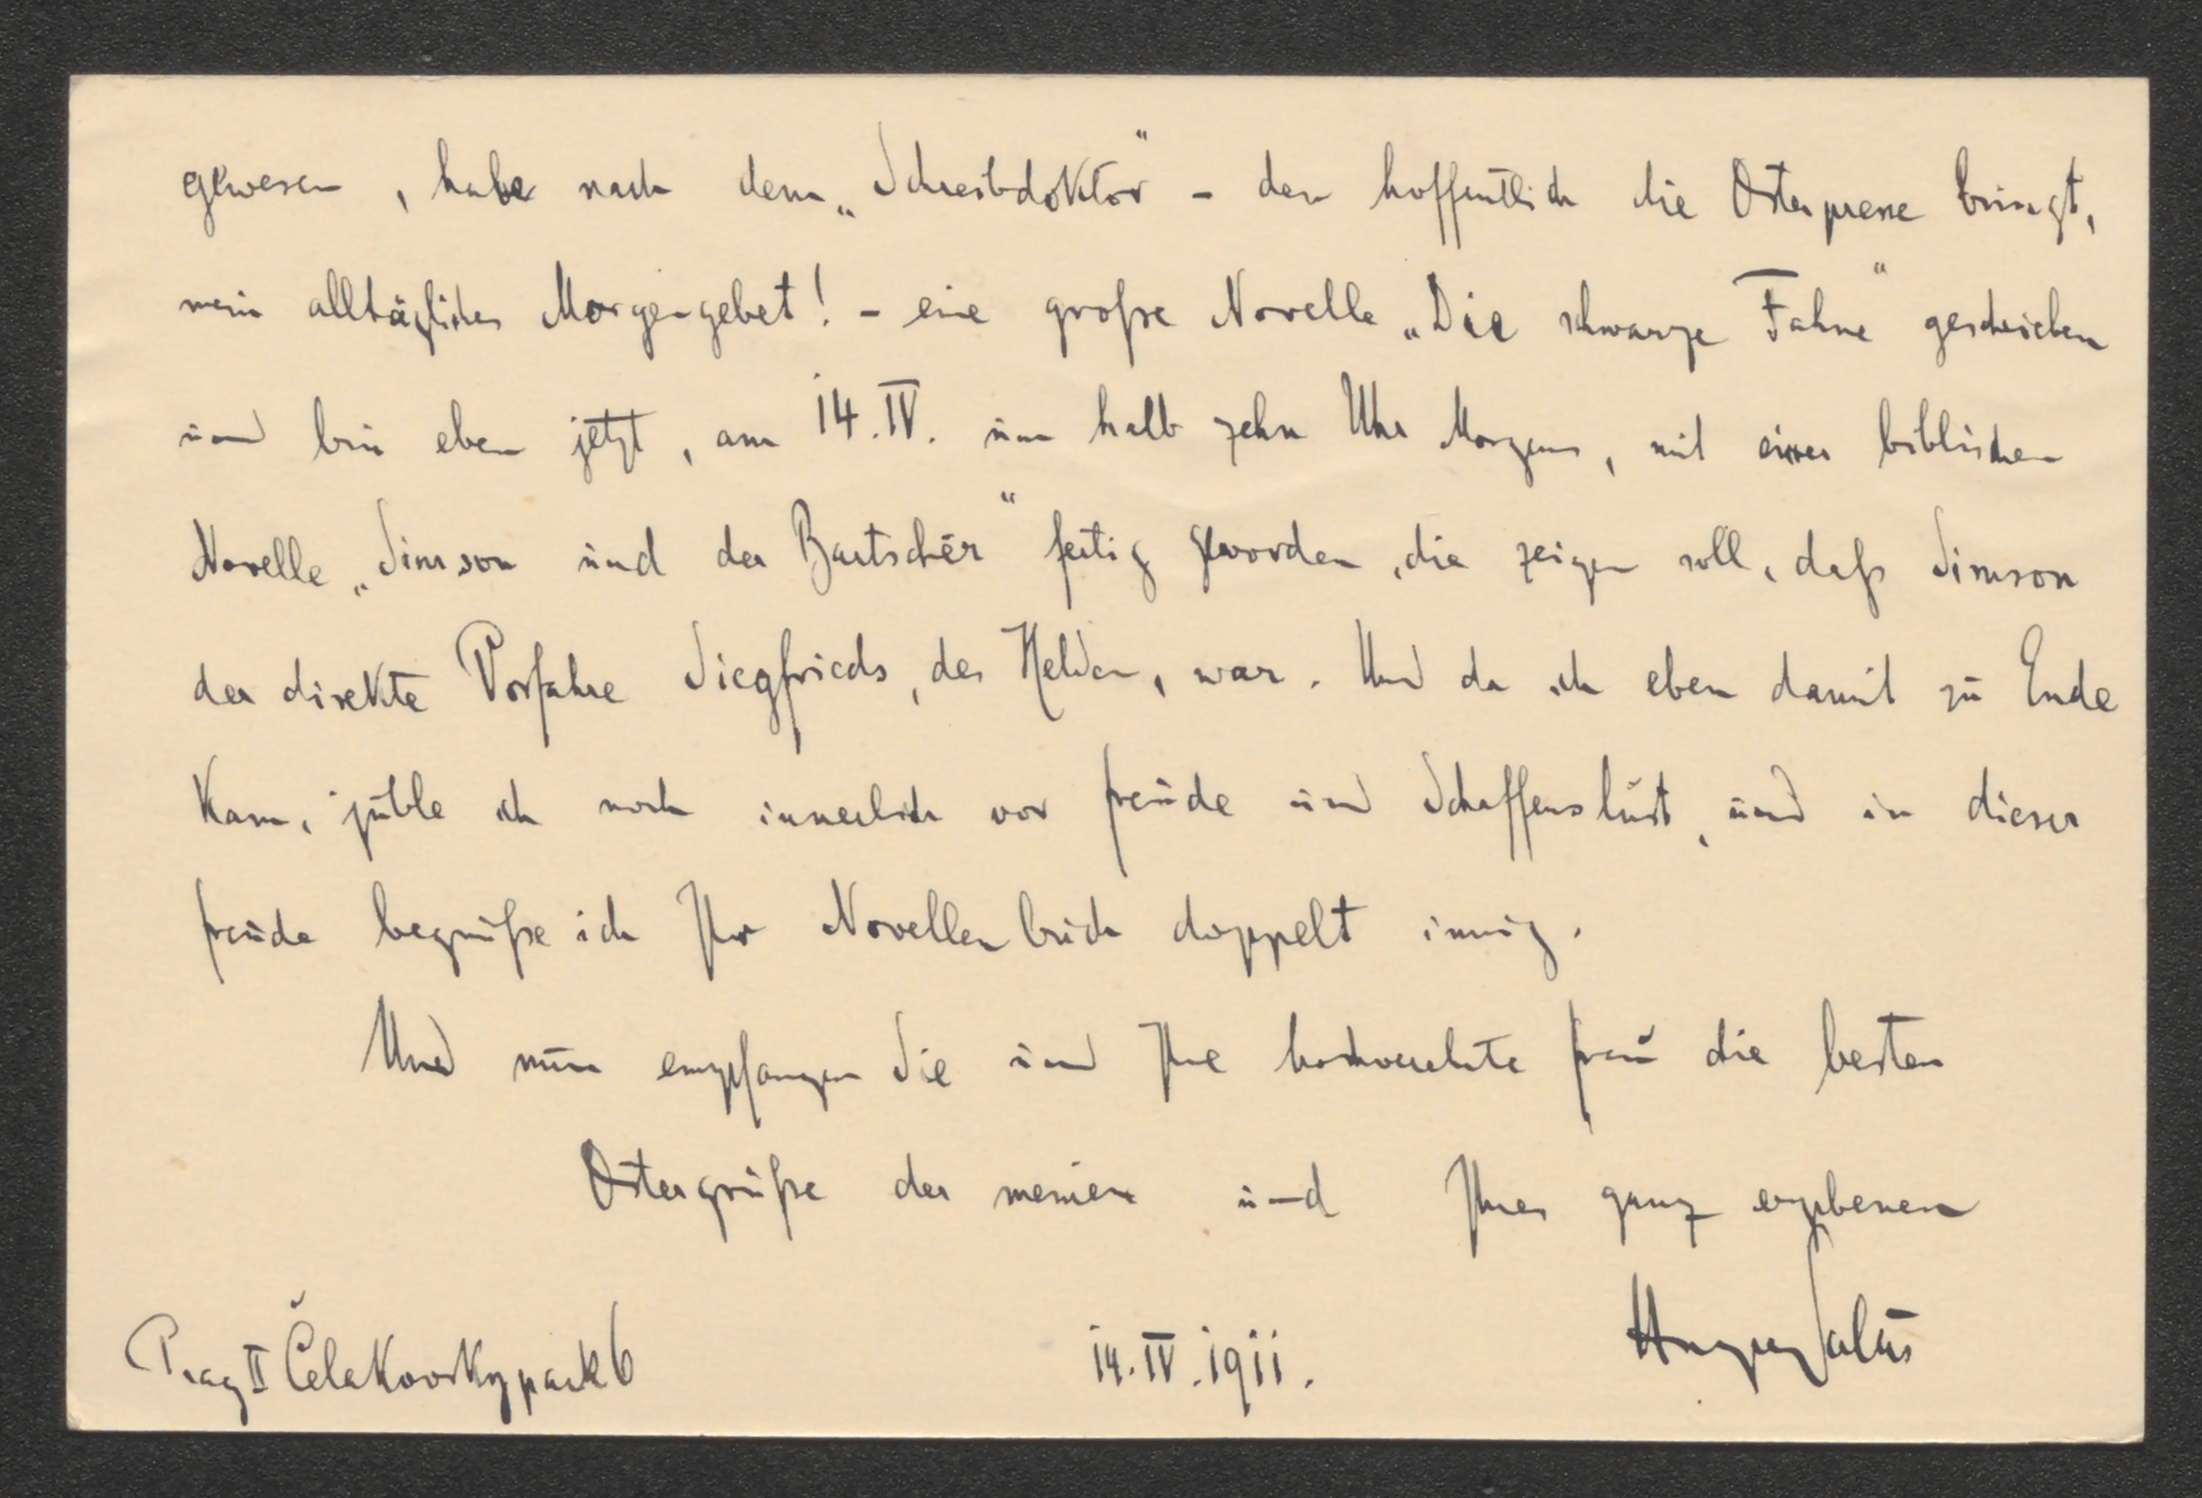 gewesen, habe nach dem „Schreibdoktor“ – den hoffentlich die Osterpresse bringt,
mein alltägliches Morgengebet! – eine große Novelle „Die schwarze Fahne“ geschrieben
und bin eben jetzt, am 14. IV. um halb zehn Uhr Morgens, mit einer biblischen
Novelle „Simson und der Bartscher“ fertig geworden, die zeigen soll, daß Simson
der direkte Vorfahre Siegfrieds, des Helden, war. Und da ich eben damit zu Ende
kam, juble ich noch innerlich vor Freude und Schaffenslust, und in dieser
Freude begrüße ich Ihr Novellenbuch doppelt innig.
Und nun empfangen Sie und Ihre hochverehrte Frau die besten
Ostergrüße der meinen und Ihres ganz ergebenen
Hugo Salus
Prag II Čelakovskypark 6
14. IV. 1911.